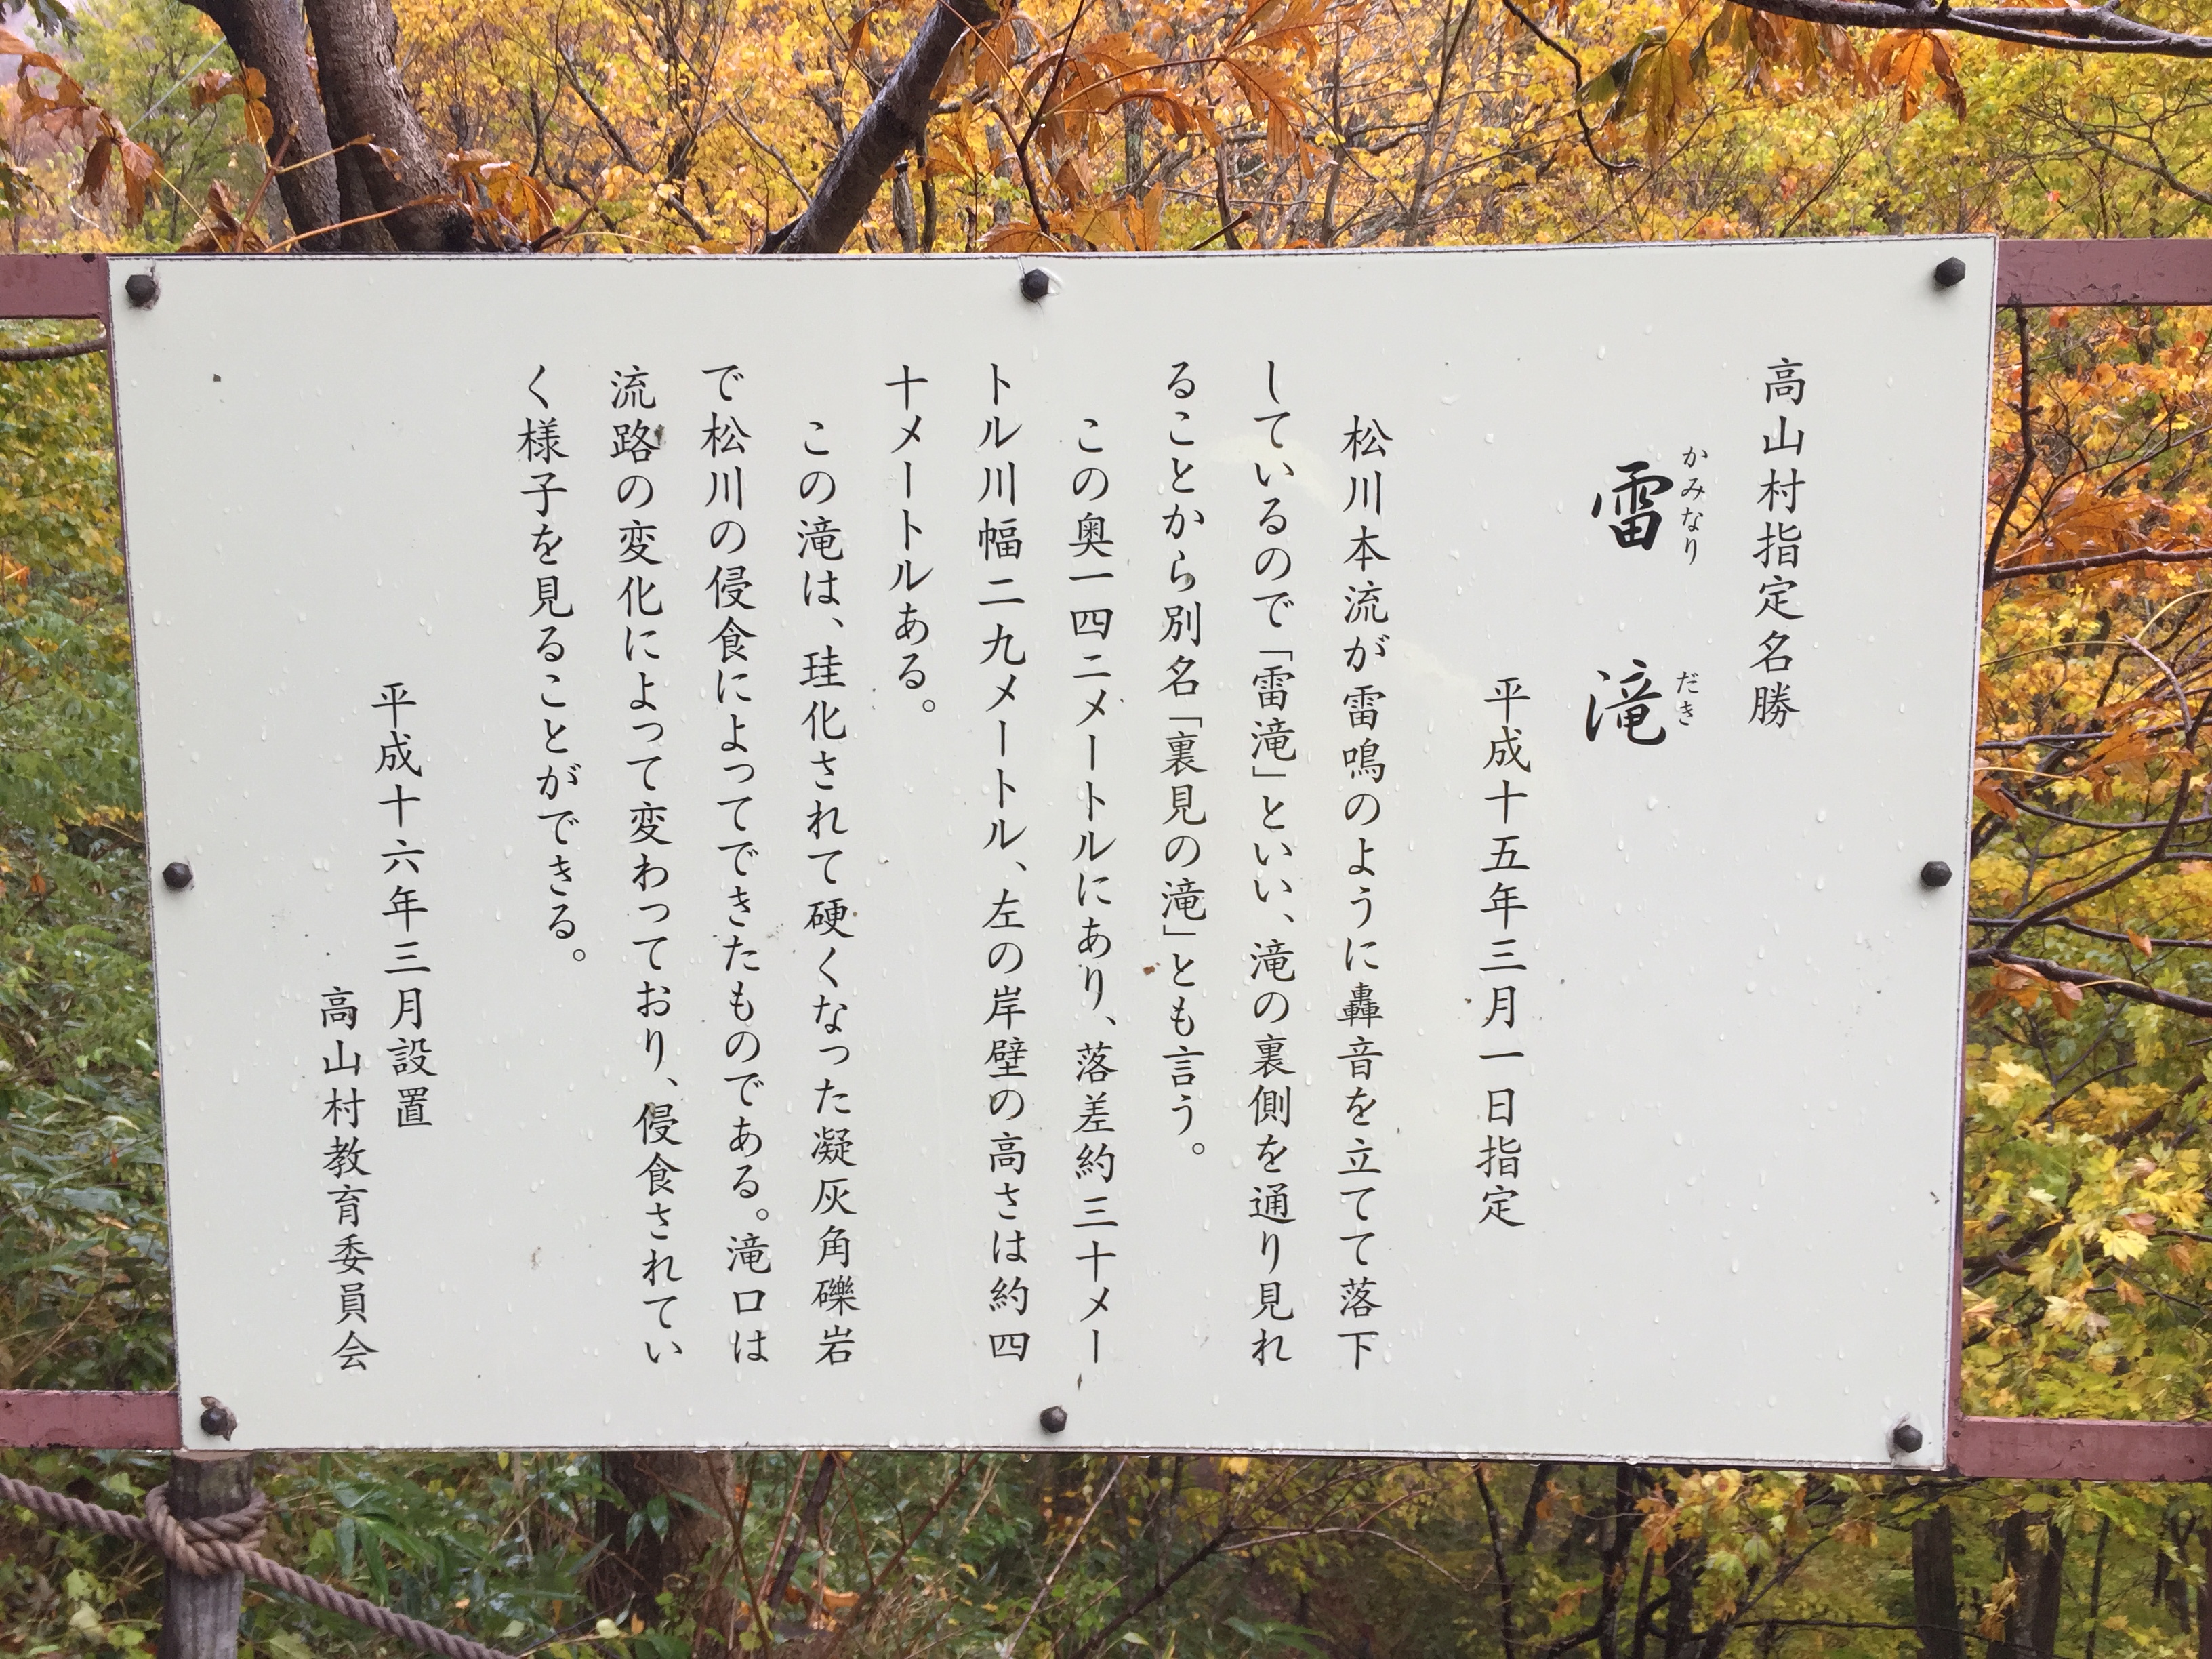 高山村指定名勝
かみなり だき
雷 滝
平成十五年三月一日指定
松川本流が雷鳴のように轟音を立てて落下
しているので「雷滝」といい、滝の裏側を通り見れ
ることから別名「裏見の滝」とも言う。
この奥一四二メートルにあり、落差約三十メー
トル川幅二九メートル、左の岸壁の高さは約四
十メートルある。
この滝は、珪化されて硬くなった凝灰角礫岩
で松川の侵食によってできたものである。滝口は
流路の変化によって変わっており、侵食されてい
く様子を見ることができる。
平成十六年三月設置
高山村教育委員会